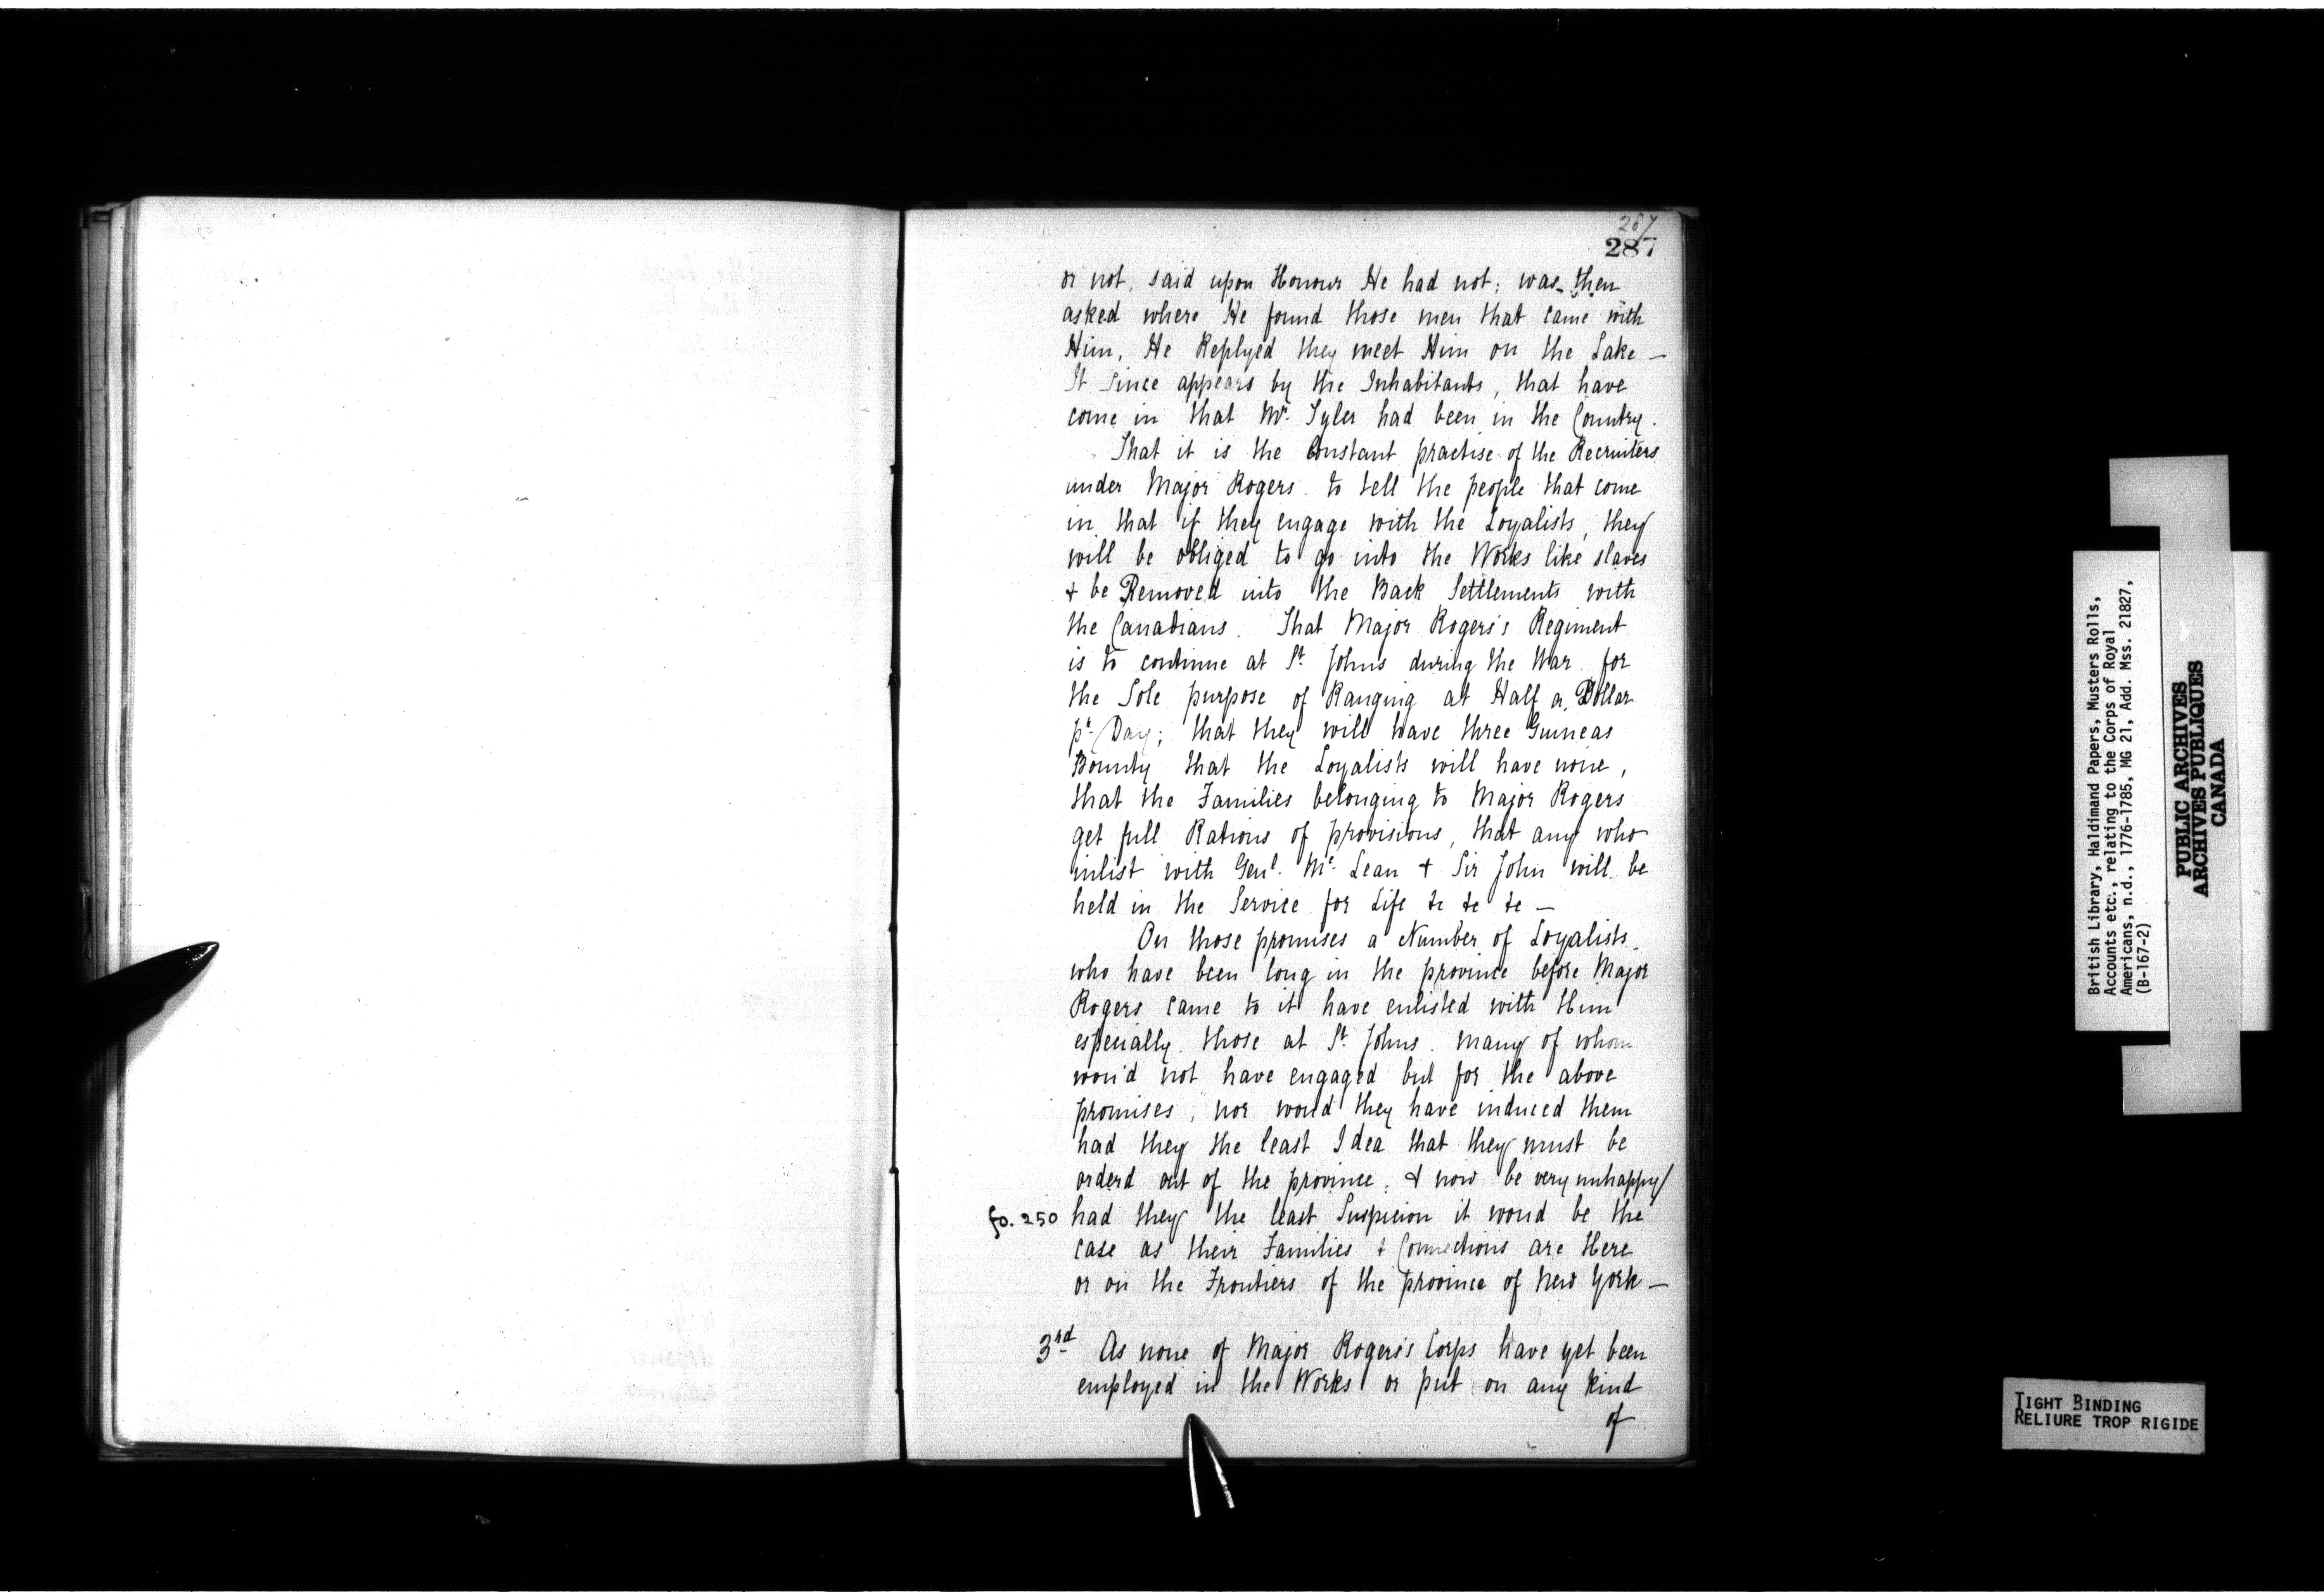 287
287
or not, said upon Honour He had not; was then
asked where He found those men that came with
Him, He Replyed they meet Him on the Lake —
It since appears by the Inhabitants, that have
come in that Mr. Tyler had been in the Country.
That it is the Constant practise of the Recruiters
under Major Rogers to tell the people that come
in that if they engage with the Loyalists, they
will be obliged to go into the Works like slaves
& be Removed into the Back Settlements with
the Canadians. That Major Rogers's Regiment
is to continue at St. Johns during the War for
the Sole purpose of Ranging at Half a Dollar
pr. Day; that they will have three Guineas
Bounty that the Loyalists will have none,
that the Families belonging to Major Rogers
get full Rations of provisions, that any who
inlist with Genl. Mc. Lean & Sir John will be
held in the Service for Life &c &c &c —
On those promises a Number of Loyalists
who have been long in the province before Major
Rogers came to it have enlisted with Him
especially those at St. Johns. many of whom
wou'd not have engaged but for the above
promises, nor woud they have induced them
had they the least Idea that they must be
orderd out of the province; & now be very unhappy
fo. 250 had they the least Suspicion it woud be the
case as their Families & Connections are Here
or on the Frontiers of the province of New York —
3rd As none of Major Rogers's Corps have yet been
employed in the Works or put on any kind
of
British Library, Haldimand Papers, Musters Rolls,
Accounts etc., relating to the Corps of Royal
Americans, n.d., 1776-1785, MG 21, Add. Mss. 21827,
(B-167-2)
PUBLIC ARCHIVES
ARCHIVES PUBLIQUES
CANADA
TIGHT BINDING
RELIURE TROP RIGIDE